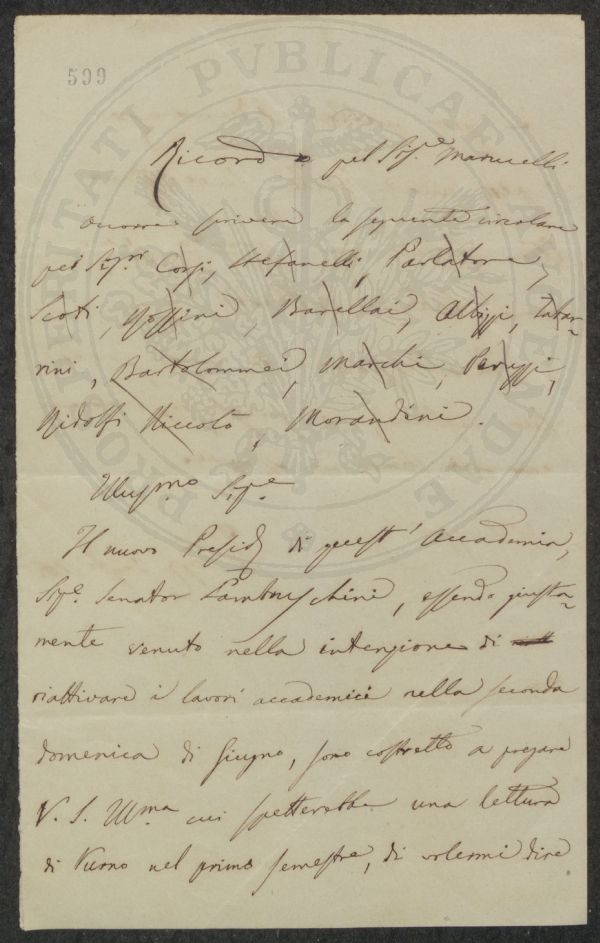 599
PROSPERITATI PVBLICAE AVGENDAE
Ricordo pel Sig.e Marucelli
Occorre scrivere la seguente circolare
pei Sig.ri Corsi, Stefanelli, Parlatore,
Scoti, Gozzini, Barellai, Albizzi, Tabar-
rini, Bartolommei, Marchi, Peruzzi,
Ridolfi Niccolò, Morandini.
Illus.mo Sig.e
Il nuovo Presid. di quest' Accademia,
Sig.e Senator Lambruschini, essendo giusta-
mente venuto nella intenzione di
riattivare i lavori accademici nella seconda
domenica di Giugno, sono costretto a pregare
V. S. Ill.ma cui spetterebbe una lettura
di turno nel primo semestre, di volermi dire